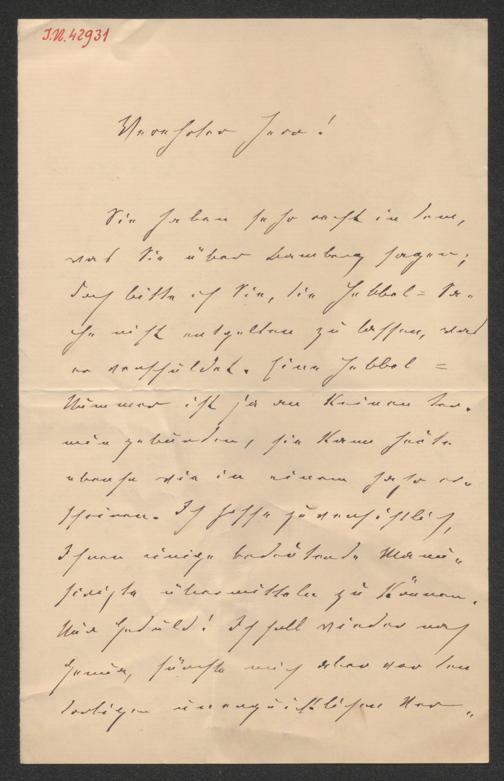 J.N. 42931
Verehrter Herr!
Sie haben sehr recht in dem,
was Sie über Bamberg sagen;
doch bitte ich Sie, die Hebbel=Sa-
che nicht entgelten zu lassen, was
er verschuldet. Eine Hebbel=
Nummer ist ja an keinen Ter-
min gebunden, sie kann heute
ebenso wie in einem Jahr er-
scheinen. Ich hoffe zuversichtlich,
Ihnen einige bedeutende Manu-
scripte übermitteln zu können.
Nur Geduld! Ich soll wieder nach
Genua, fürchte mich aber vor den
dortigen unerquicklichen Ver-